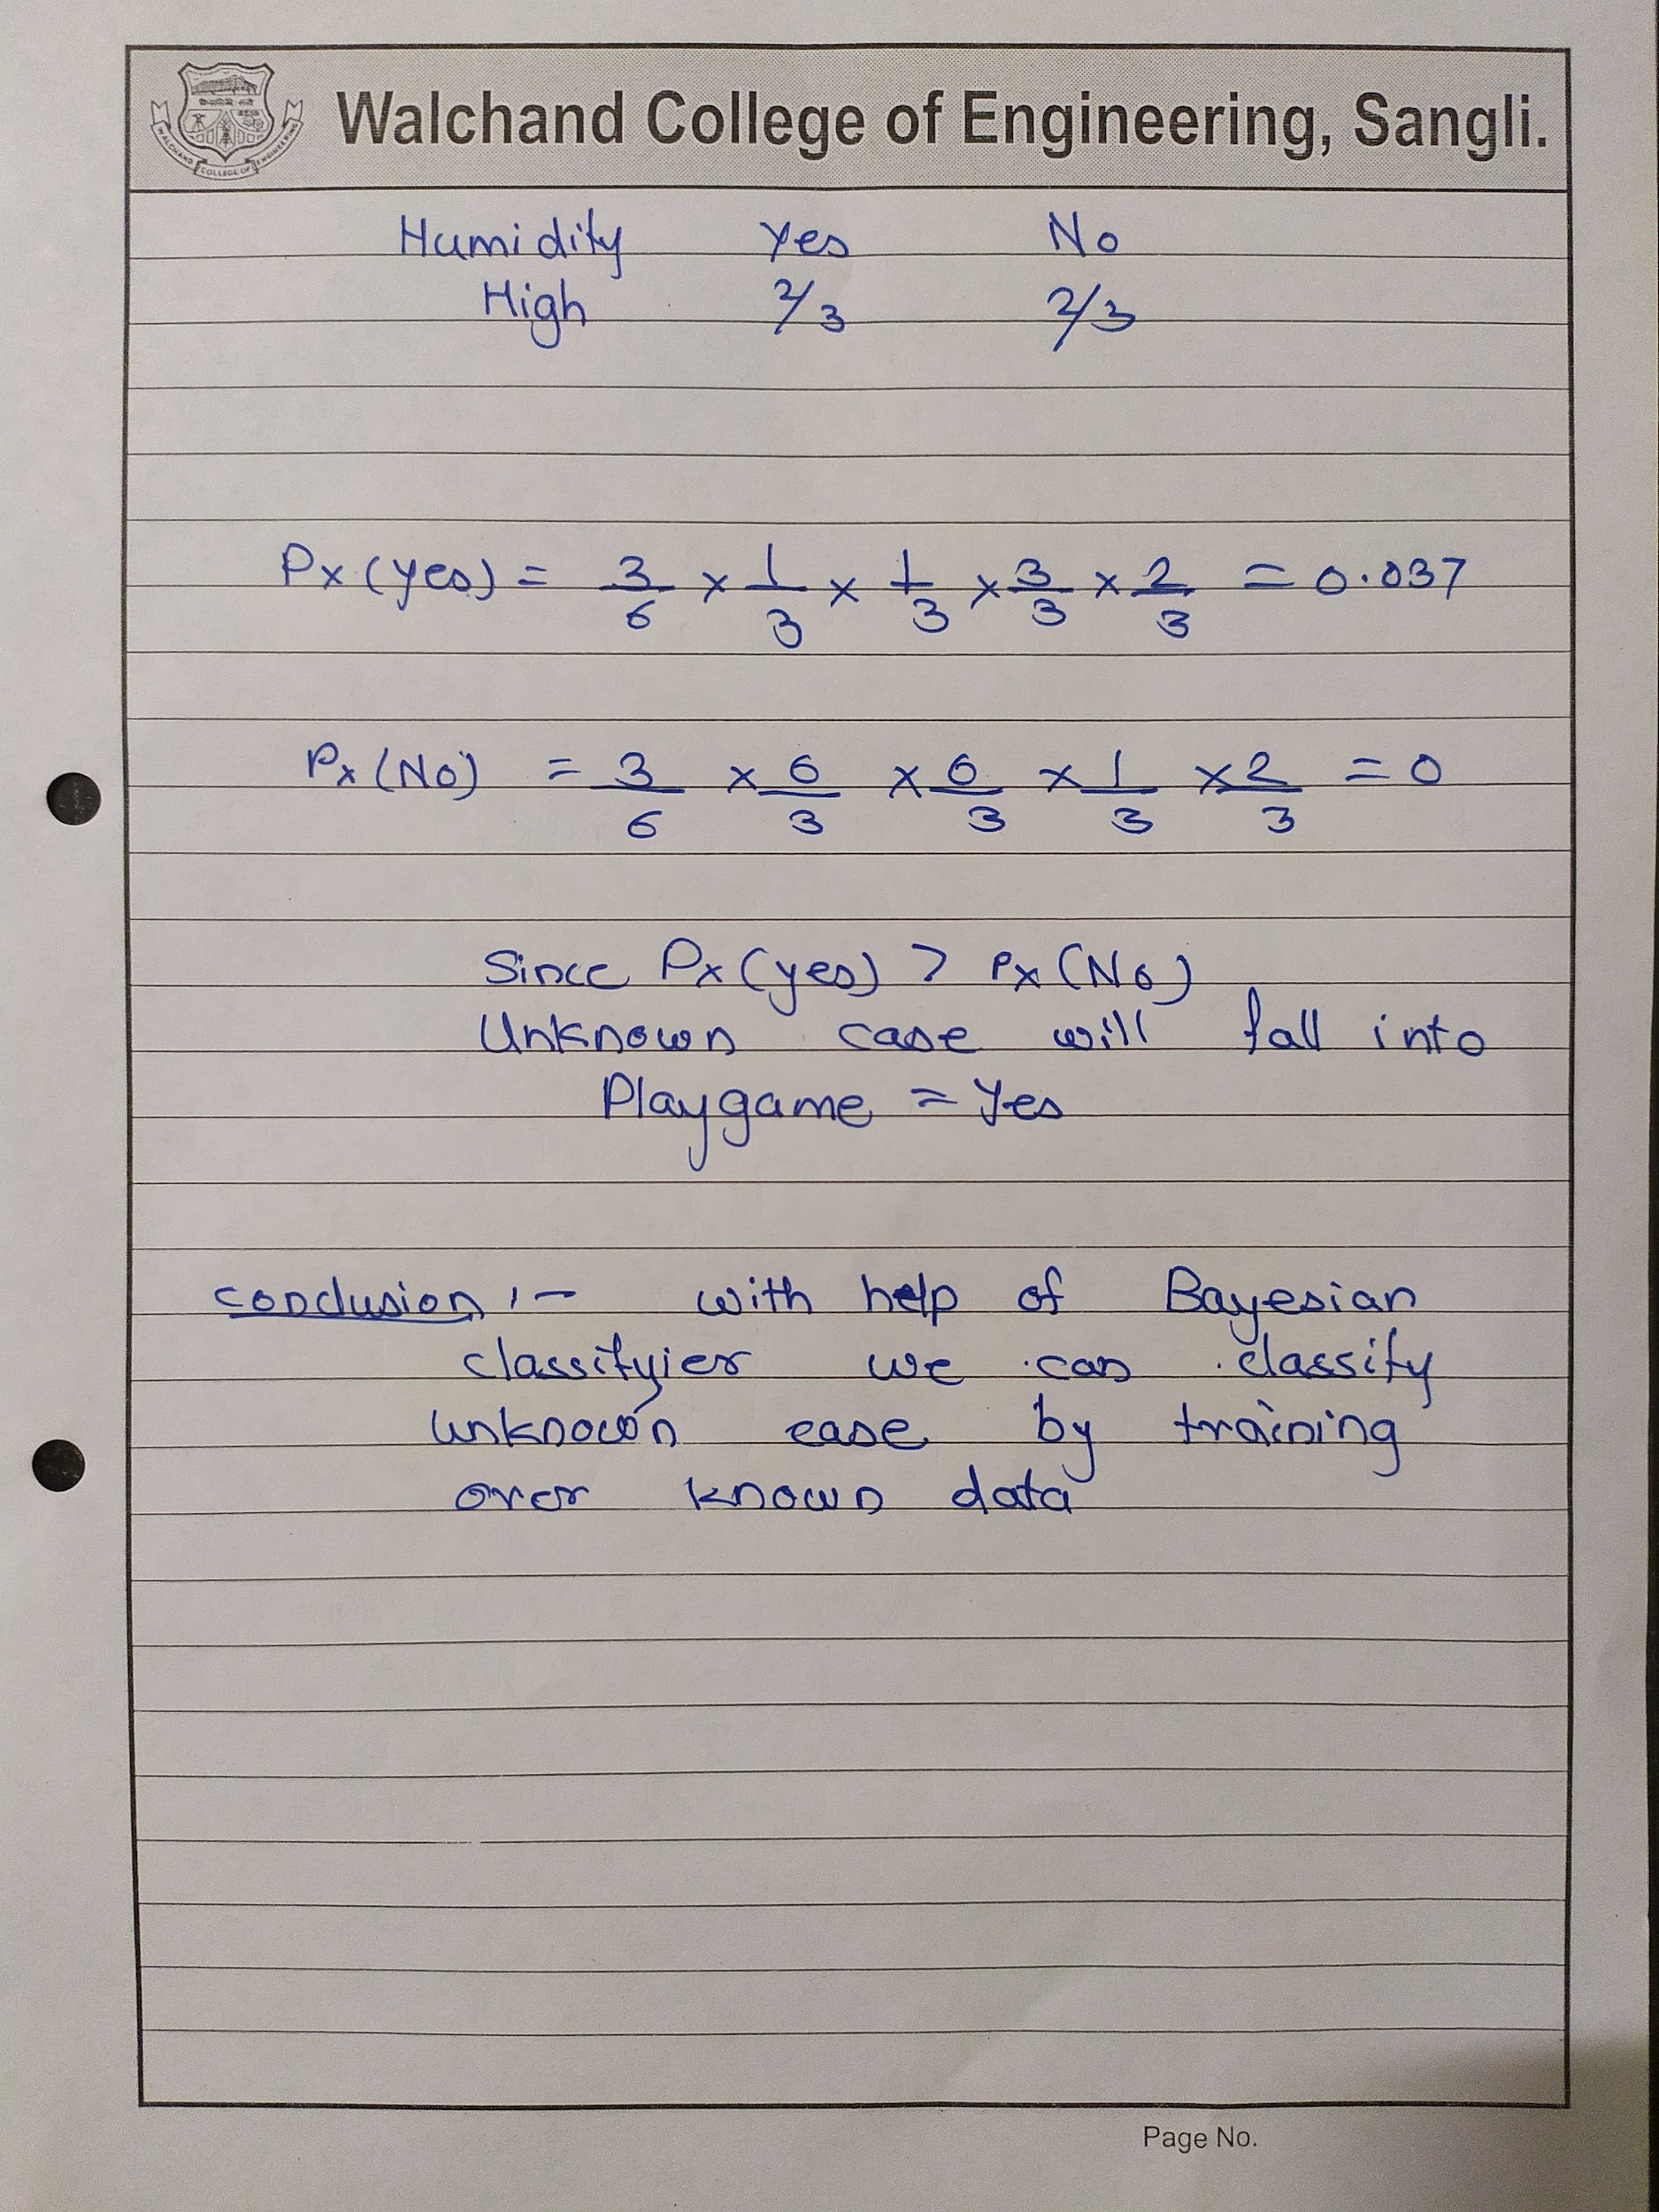 WALCHAND COLLEGE OF ENGINEERING
Walchand College of Engineering, Sangli.
Humidity Yes No
High 2/3 2/3
Px (yes) = 3/6 × 1/3 × 1/3 × 3/3 × 2/3 = 0.037
Px (No) = 3/6 × 0/3 × 0/3 × 1/3 × 2/3 = 0
Since Px (yes) > Px (No)
Unknown case will fall into
Playgame = Yes
conclusion :- with help of Bayesian
classifyier we can classify
unknown case by training
over known data
Page No.